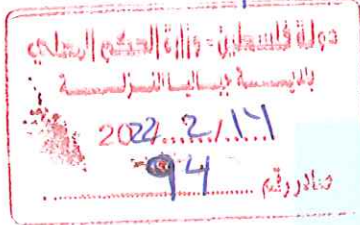 دولة فلسطين - وزارة الحكم المحلي
بلديـــة جباليا النـزلـــة
2022 / 2 / ١٦
صادر رقم 94